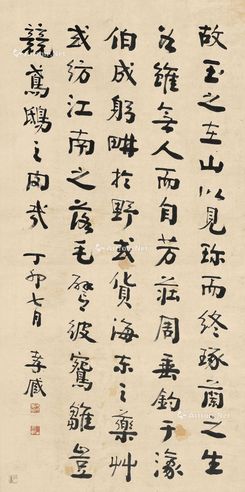 故玉之在山以見珍而終琢蘭之生
谷雖無人而自芳莊周垂釣于濠
伯成躬畊於野或貨海東之藥艸
或紡江南之落毛譬彼鴛雛豈
競鳶鴟之肉哉 丁卯七月 孝臧